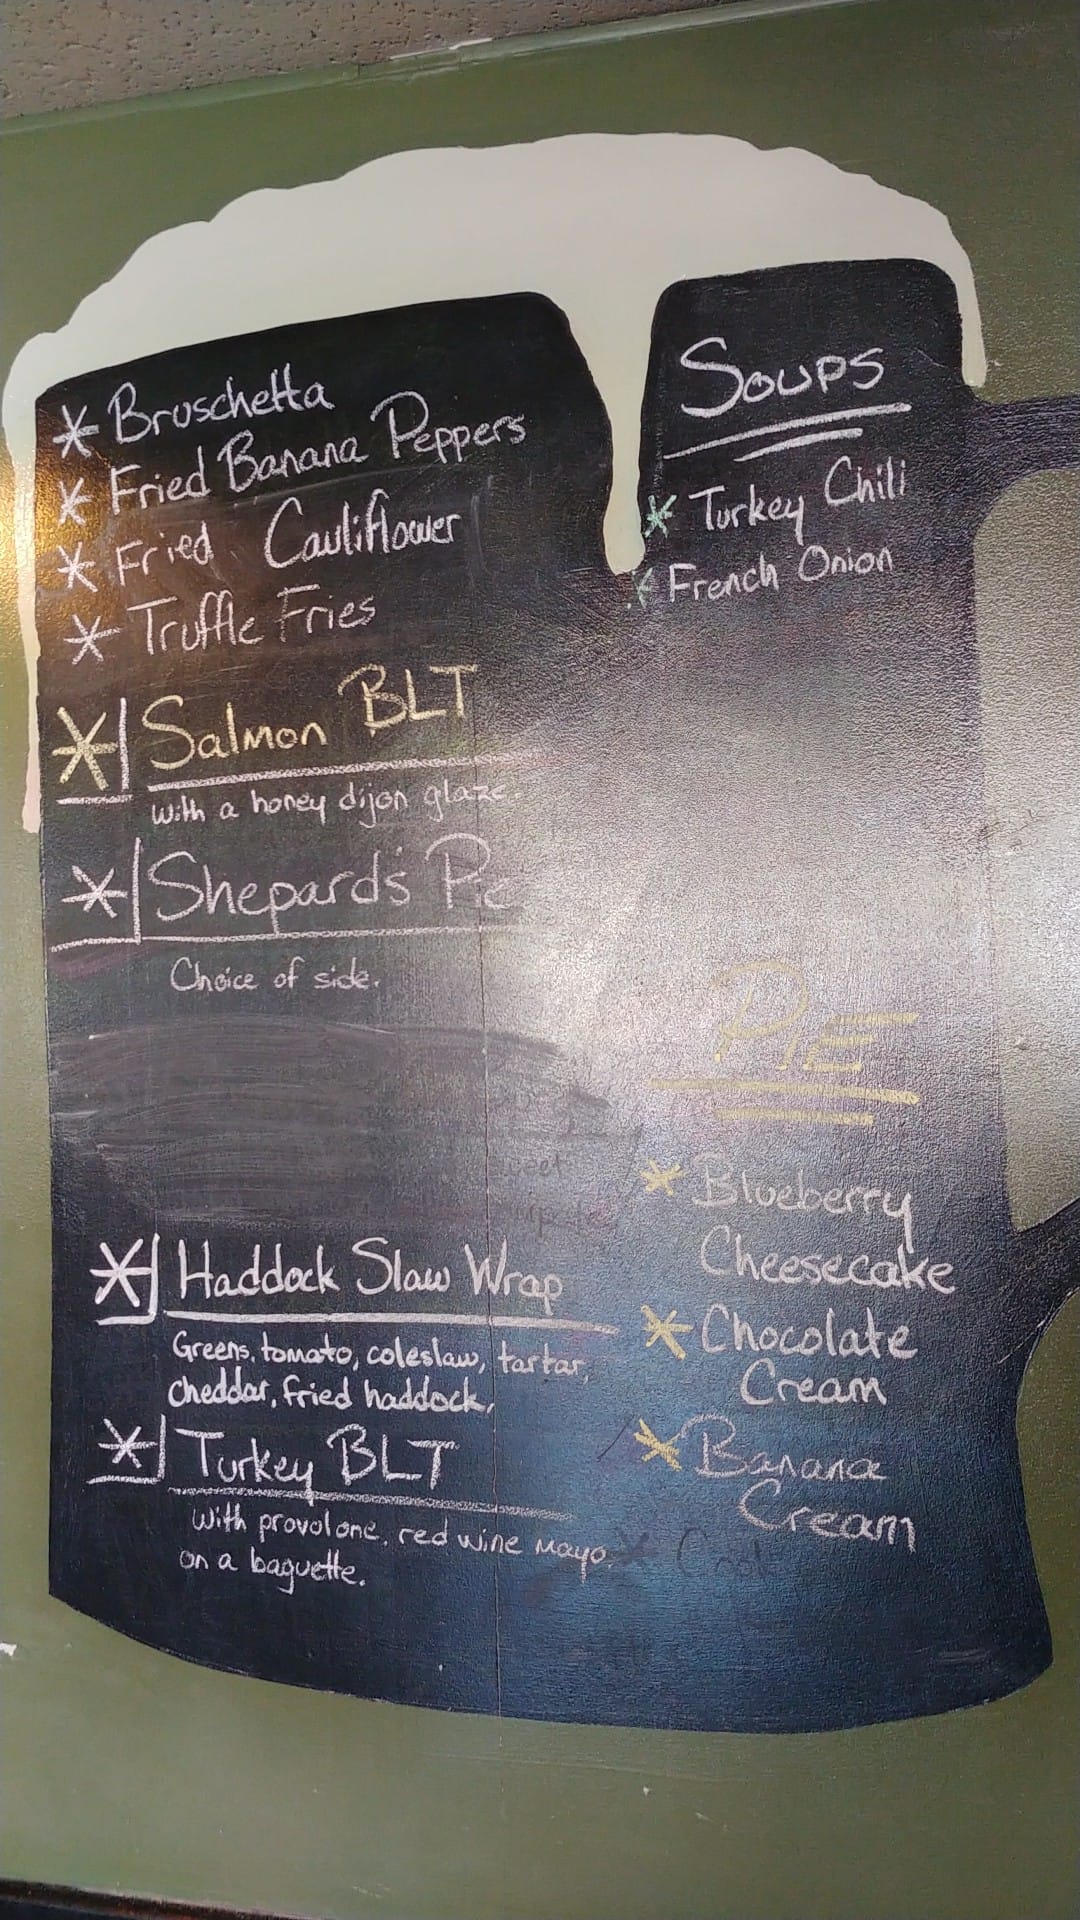 Bruschetta
Fried Banana Peppers
Fried Cauliflower
Truffle Fries
Salmon BLT
with a honey dijon glaze.
Shepard's Pie
Choice of side.
Haddock Slaw Wrap
Greens, tomato, coleslaw, tartar,
cheddar, fried haddock,
Turkey BLT
With provolone, red wine mayo,
on a baguette.
Soups
Turkey Chili
French Onion
PIE
Blueberry
Cheesecake
Chocolate
Cream
Banana
Cream